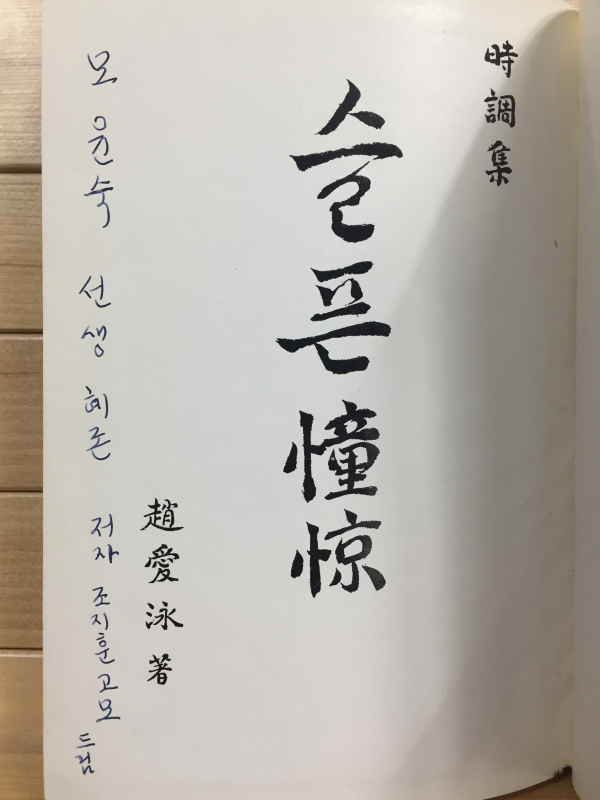 時調集
슬픈 憧憬
趙愛泳 著
모윤숙 선생 혜존
저자 조지훈 고모
드림